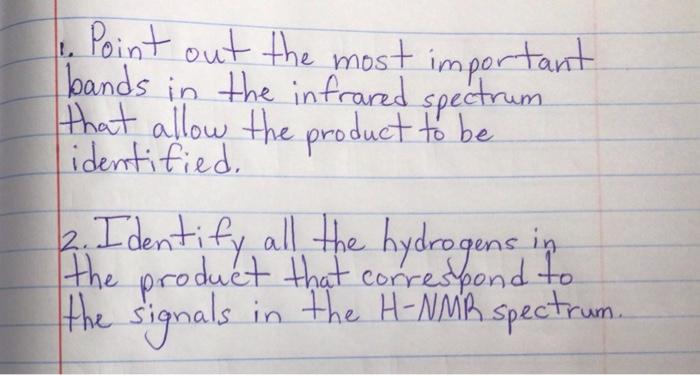 1. Point out the most important
bands in the infrared spectrum
that allow the product to be
identified.
2. Identify all the hydrogens in
the product that correspond to
the signals in the H-NMR spectrum.